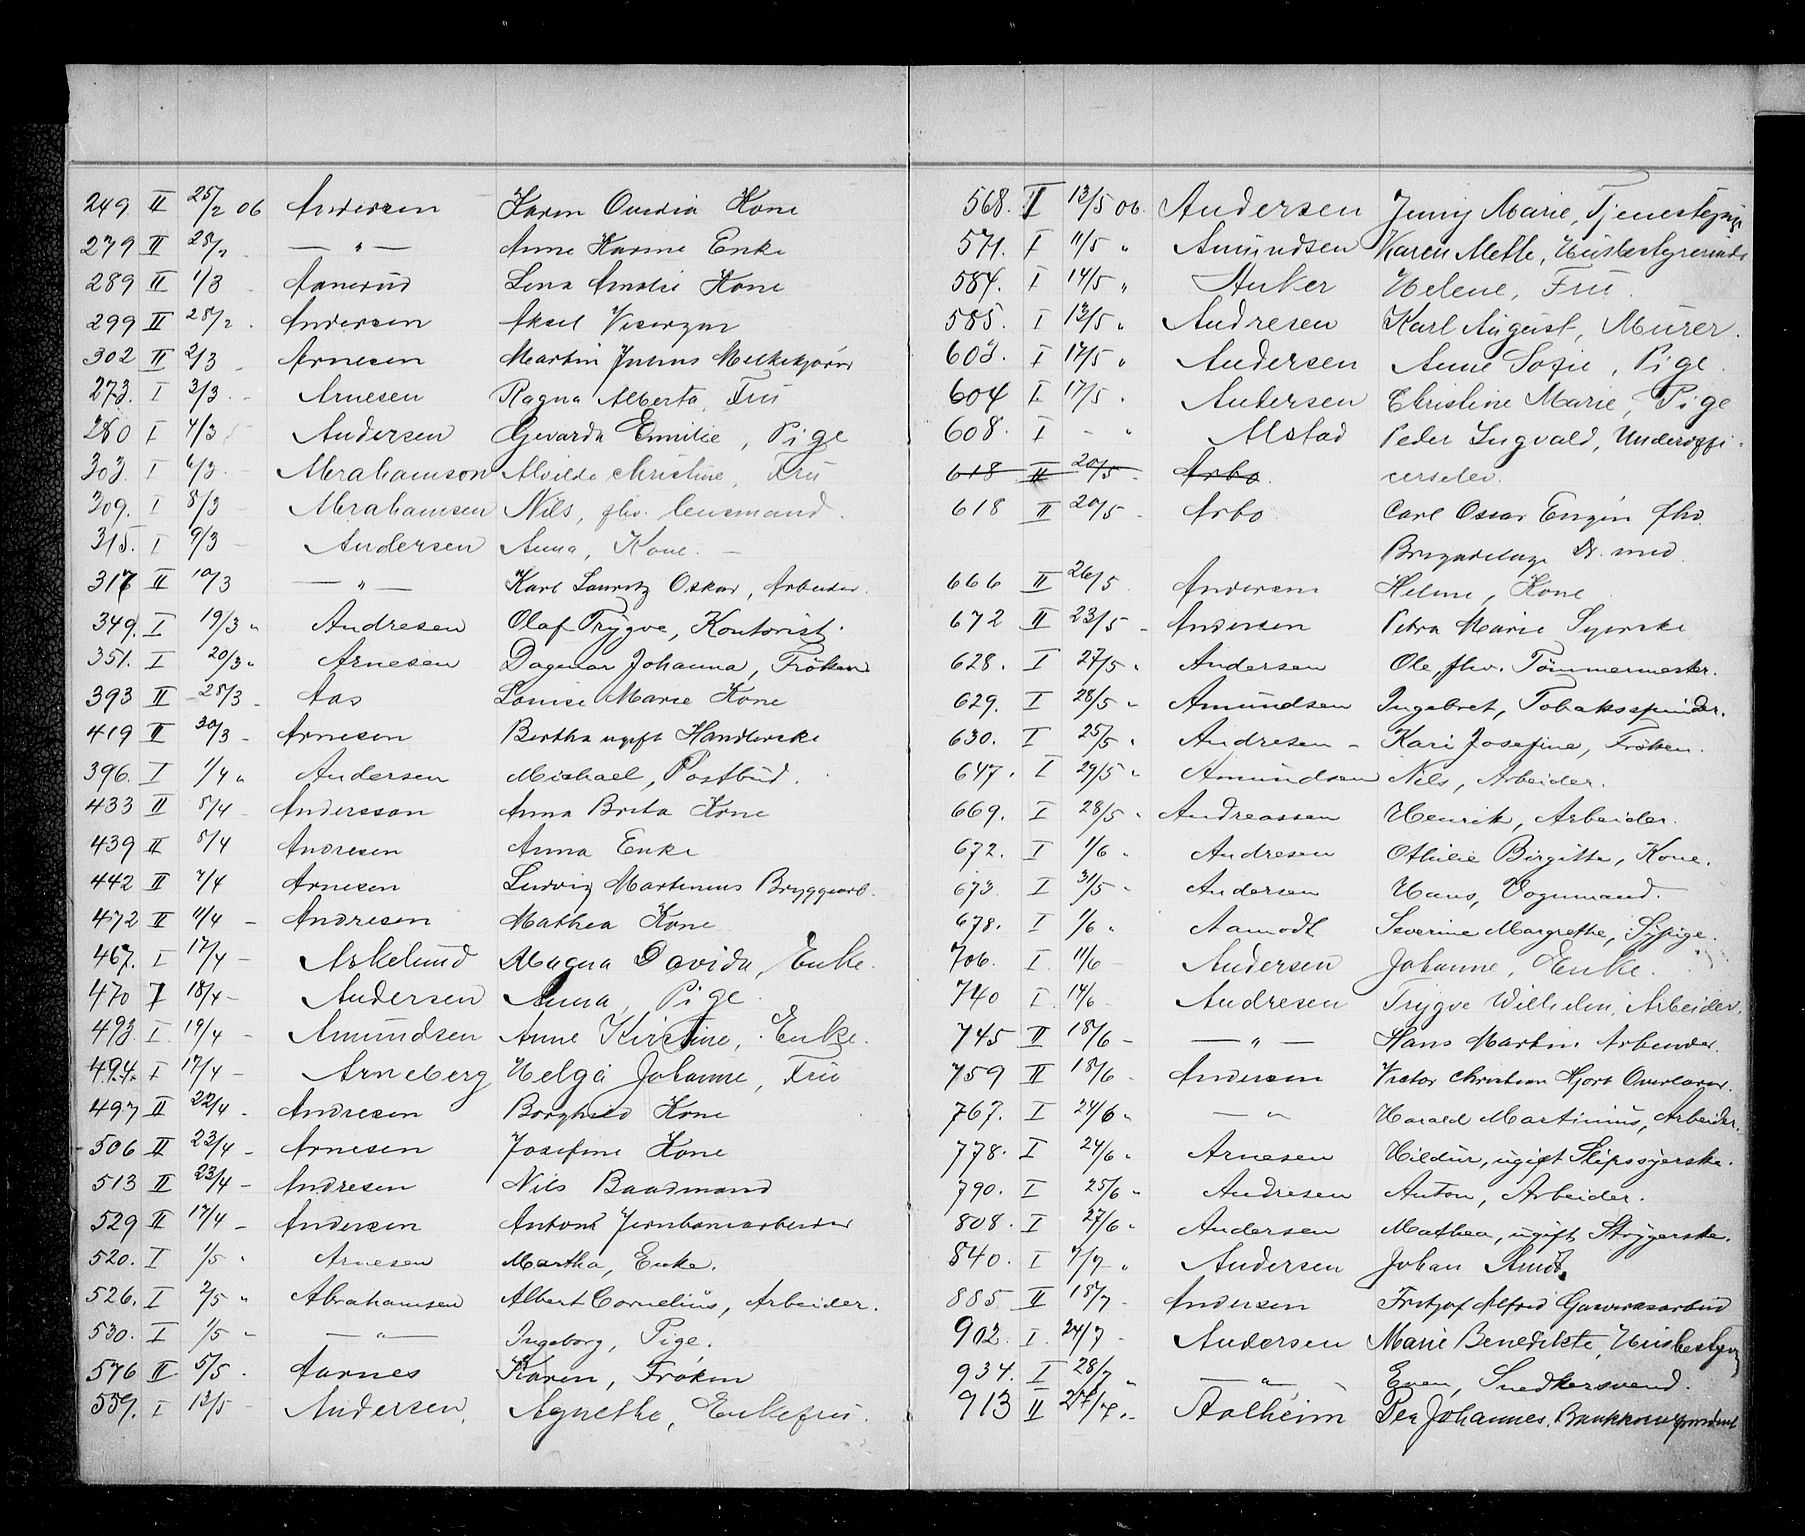 249 II 25/2 06 Andersen Karen Ovidia Kone
279 II 28/2 — " — Anne Karine Enke
289 II 1/3 Aanerud Lena Amalie Kone
299 II 28/2 Andersen Aksel Visergut
302 II 2/3 Arnesen Martin Julius Melkekjører
273. I 3/3 Arnesen Ragna Alberta, Fru
280 I 4/3 Andersen Gevarda Emilie, Pige
303. I 6/3 Abrahamson Alvilde Christine, Fru
309. I 8/3 Abrahamsen Nils, fhv. Lensmand.
315. I 9/3 Andersen Anna, Kone. —
317 II 10/3 — " — Karl Lauritz Oskar, Arbeider.
349. I 19/3 " Andresen Olaf Trygve, Kontorist.
351. I 20/3 " Arnesen Dagmar Johanna, Frøken
393 II 28/3 Aas Louise Marie Kone
419 II 30/3 Arnesen Bertha ugift Handlerske
396. I 1/4 " Andersen Michael, Postbud.
433 II 5/4 Andersson Anna Brita Kone
439 II 5/4 Andresen Anna Enke
442 II 7/4 Arnesen Ludvig Martinius Bryggearb.
472 II 11/4 Andresen Mathea Kone
467. I 17/4 Askelund Magna Davida, Enke.
470 I 18/4 Andersen Anna, Pige.
493. I. 19/4 Amundsen Anne Kirstine, Enke.
494. I 17/4 Arneberg Helga Johanne, Fru
497 II 22/4 Andresen Borghild Kone
506 II 23/4 Arnesen Josefine Kone
513 II 23/4 Andresen Nils Baadmand
529 II 17/4 Andersen Anton Jernbanearbeider
520. I 1/5 " Arnesen Martha, Enke.
526. I 2/5 " Abrahamsen Albert Cornelius, Arbeider.
530. I 1/5 " — " — Ingeborg, Pige.
576 II 5/5 Aarnes Karen, Frøken
559. I 13/5 Andersen, Agnethe, Enkefru.
568. I 13/5 06. Andersen Jenny Marie, Tjenestepige
571. I 11/5 " Amundsen Karen Mette, Husbestyrerinde
584. I 14/5 " Anker Helene, Fru.
585. I 13/5 " Andresen Karl August, Murer.
603. I 17/5 " Andersen Anne Sofie, Pige.
604 I. 17/5 " Andersen Christine Marie, Pige
608. I - " Alstad Peder Ingvald, Underoffi-
618 II 20/5 Arbo. cerselev.
618 II 20/5 Arbo Carl Oscar Eugén fhv.
Brigadelæge Dr. med.
666 II 26/5 Andersen Helene, Kone
672 II 23/5 Andersen Petra Marie Syerske
628. I 27/5 " Andersen Ole, fhv. Tømmermester.
629. I 28/5 " Amundsen Ingebret, Tobaksspinder.
630. I 25/5 " Andresen — Kari Josefine, Frøken.
647. I 29/5 " Amundsen Nils, Arbeider.
669. I 28/5 " Andreassen Henrik, Arbeider.
672. I 1/6 " Andresen Othilie Birgitte, Kone.
673. I 31/5 " Andersen Hans, Vognmand.
678. I 1/6 " Aamodt Severine Margrethe, Sypige.
706. I 11/6 Andersen Johanne, Enke.
740 I. 14/6 Andresen Trygve Wilhelm, Arbeider.
745 II 18/6 — " — Hans Martin Arbeider.
759 II 18/6 Andersen Victor Christian Hjort Overlærer.
767. I 24/6 " — " — Harald Martinius, Arbeider.
778. I 24/6 " Arnesen Hildur, ugift Slipssyerske.
790. I 25/6 " Andresen Anton, Arbeider.
808. I 27/6 " Andersen Mathea, ugift Strygerske.
840. I 7/7 " Andersen Johan Arndt.
885 II 18/7 Andersen Fritjof Alfred Gasverksarbeid
902. I. 24/7 Andersen Marie Benedikte, Husbestyrer
934. I 28/7 " — " — Even, Snedkersvend.
913 II 27/7. Aalheim Per Johannes, Bankkorrespondent